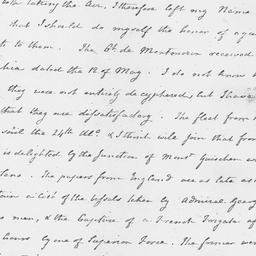 taking the Air, I therefore left my Name
that I should do myself the honor of again
to to them. The Ct. de Montmorin received
dated the 12 of May. I do not know
they were not entirely decyphered, but I have
that they are dissatisfactory. The fleet from
sail the 24th Ulto. & I think will join that from
is delighted by the Junction of Monsr. Guichen
The papers from England are as late as
a list of the Vessels taken by Admiral Geary
men, & the Capture of a French Frigate of
hours by one of Superior Force. The former were